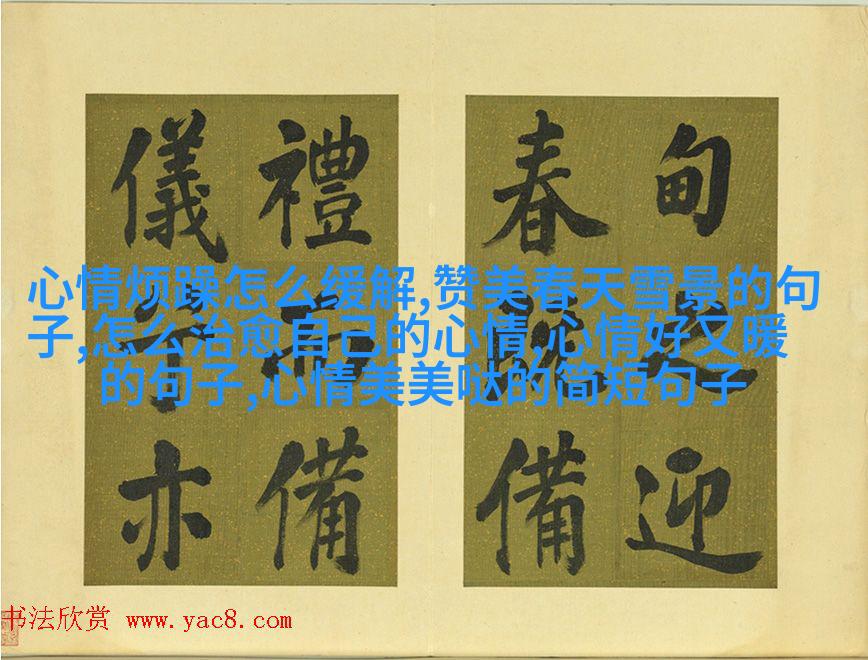 甸之迎
春備
禮備
儀亦
心情烦躁怎么缓解,赞美春天雪景的句
子,怎么治愈自己的心情,心情好又暖
的句子,心情美美哒的简短句子
书法欣赏 www.yac8.com